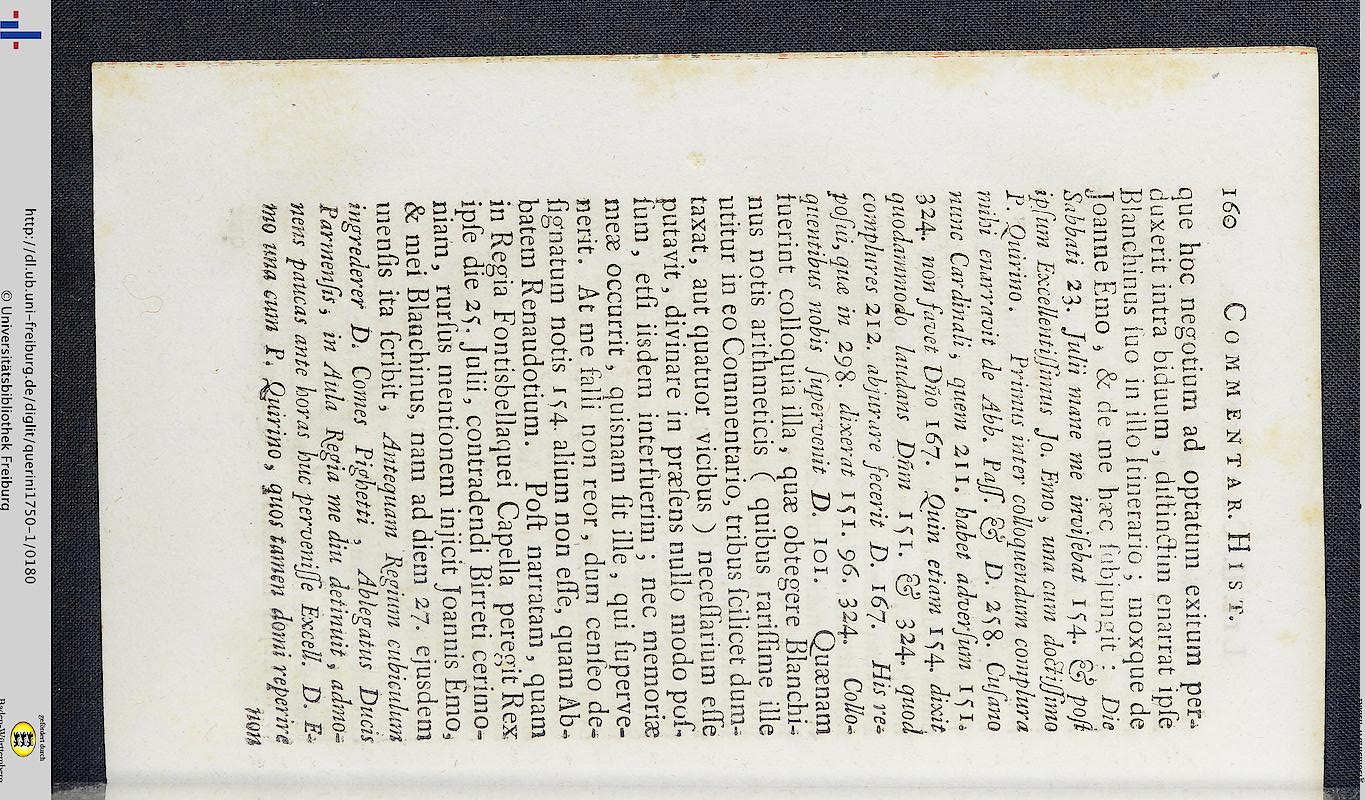 160 COMMENTAR. HIST.
que hoc negotium ad optatum exitum per-
duxerit intra biduum, distinctim enarrat ipse
Blanchinus suo in illo Itinerario; moxque de
Joanne Emo, & de me hæc subjungit: Die
Sabbati 23. Julii mane me invisebat 154. & post
ipsum Excellentissimus Jo. Emo, una cum doctissimo
P. Quirino. Primus inter colloquendum complura
mihi enarravit de Abb. Pass. & D. 258. Cusano
nunc Cardinali, quem 211. habet adversum 151.
324. non favet Dño 167. Quin etiam 154. dixit
quodammodo laudans Dñm 151. & 324. quod
complures 212. abjurare fecerit D. 167. His re-
posui, quæ in 298. dixerat 151. 96. 324. Collo-
quentibus nobis supervenit D. 101. Quænam
fuerint colloquia illa, quæ obtegere Blanchi-
nus notis arithmeticis ( quibus rarissime ille
utitur in eo Commentario, tribus scilicet dum-
taxat, aut quatuor vicibus ) necessarium esse
putavit, divinare in præsens nullo modo pos-
sum, etsi iisdem interfuerim; nec memoriæ
meæ occurrit, quisnam sit ille, qui superve-
nerit. At me falli non reor, dum censeo de-
signatum notis 154. alium non esse, quam Ab-
batem Renaudotium. Post narratam, quam
in Regia Fontisbellaquei Capella peregit Rex
ipse die 25. Julii, contradendi Birreti cerimo-
niam, rursus mentionem injicit Joannis Emo,
& mei Blanchinus, nam ad diem 27. ejusdem
mensis ita scribit, Antequam Regium cubiculum
ingrederer D. Comes Pighetti, Ablegatus Ducis
Parmensis, in Aula Regia me diu detinuit, admo-
nens paucas ante horas huc pervenisse Excell. D. E-
mo una cum P. Quirino, quos tamen domi reperire
non
http://dl.ub.uni-freiburg.de/diglit/querini1750-1/0180
© Universitätsbibliothek Freiburg
gefördert durch